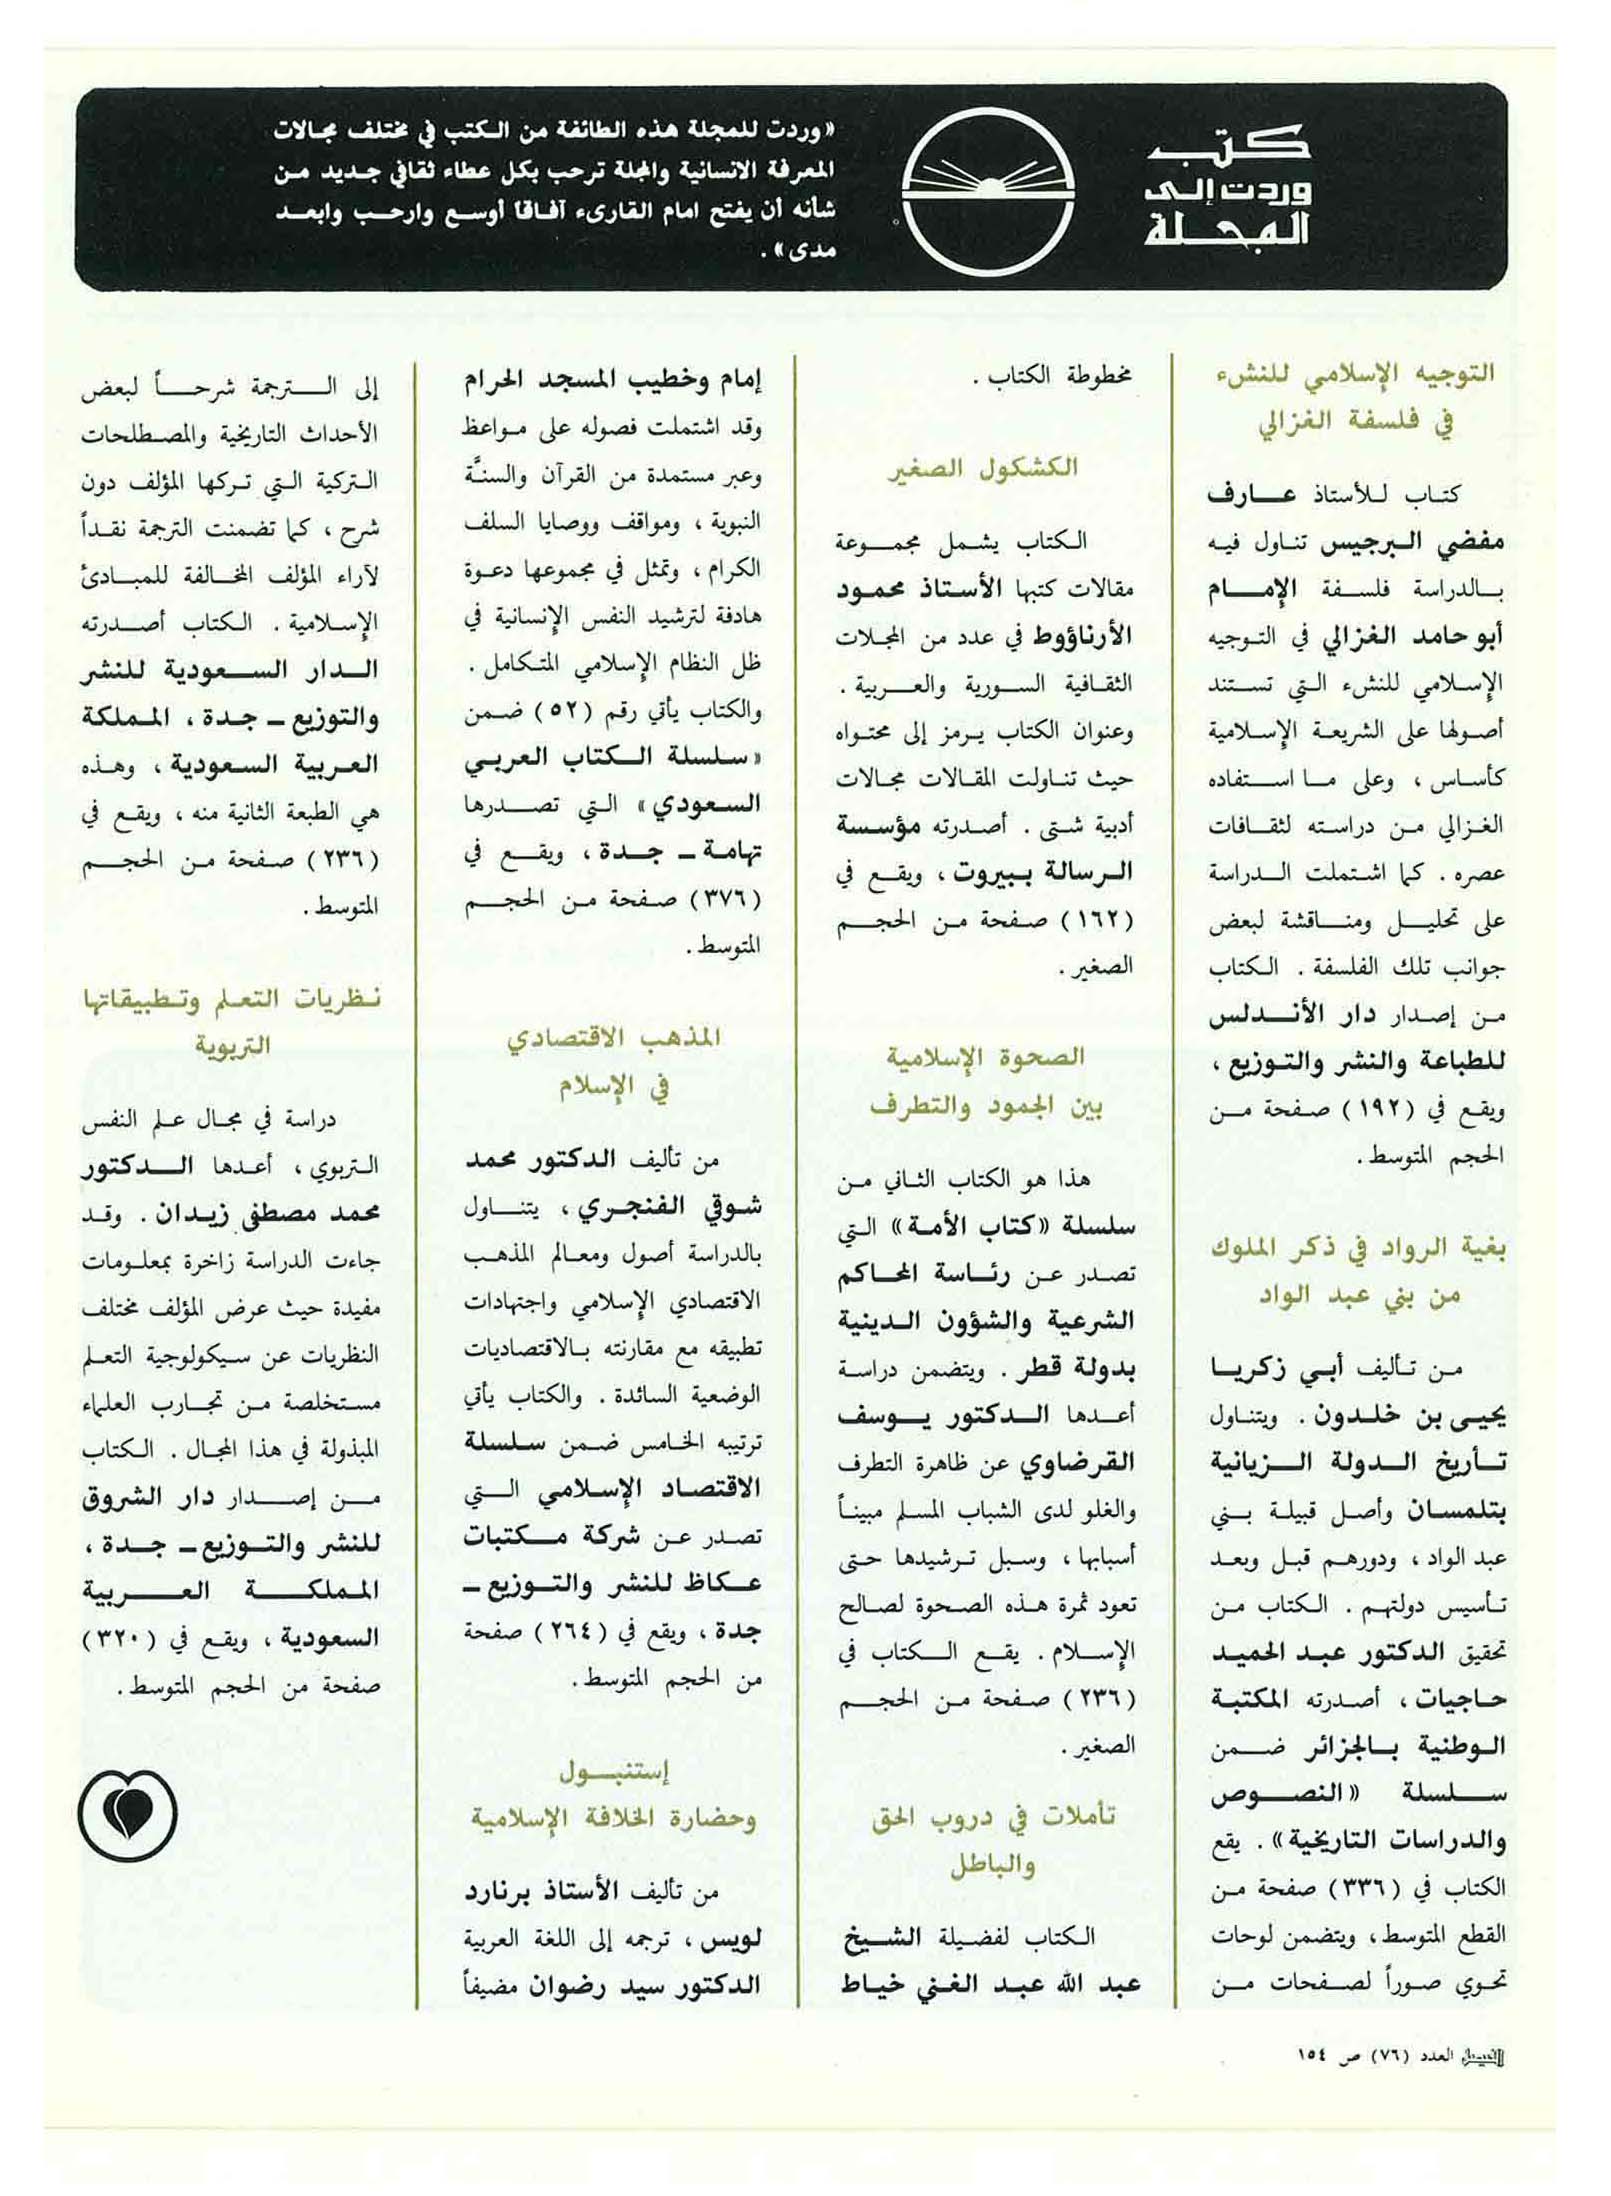 كتب
وردت إلى
المجلة
«وردت للمجلة هذه الطائفة من الكتب في مختلف مجالات
المعرفة الانسانية والمجلة ترحب بكل عطاء ثقافي جديد من
شأنه أن يفتح امام القارىء آفاقا أوسع وارحب وابعد
مدى».
التوجيه الإسلامي للنشء
في فلسفة الغزالي
كتاب للأستاذ عارف
مفضي البرجيس تناول فيه
بالدراسة فلسفة الإمام
أبو حامد الغزالي في التوجيه
الإسلامي للنشء التي تستند
أصولها على الشريعة الإسلامية
كأساس ، وعلى ما استفاده
الغزالي من دراسته لثقافات
عصره . كما اشتملت الدراسة
على تحليل ومناقشة لبعض
جوانب تلك الفلسفة . الكتاب
من إصدار دار الأندلس
للطباعة والنشر والتوزيع ،
ويقع في (١٩٢) صفحة من
الحجم المتوسط .
بغية الرواد في ذكر الملوك
من بني عبد الواد
من تأليف أبي زكريا
يحيى بن خلدون . ويتناول
تأريخ الدولة الزيانية
بتلمسان وأصل قبيلة بني
عبد الواد ، ودورهم قبل وبعد
تأسيس دولتهم . الكتاب من
تحقيق الدكتور عبد الحميد
حاجيات ، أصدرته المكتبة
الوطنية بالجزائر ضمن
سلسلة «النصوص
والدراسات التاريخية» . يقع
الكتاب في (٣٣٦) صفحة من
القطع المتوسط ، ويتضمن لوحات
تحوي صوراً لصفحات من
مخطوطة الكتاب .
الكشكول الصغير
الكتاب يشمل مجموعة
مقالات كتبها الأستاذ محمود
الأرناؤوط في عدد من المجلات
الثقافية السورية والعربية .
وعنوان الكتاب يرمز إلى محتواه
حيث تناولت المقالات مجالات
أدبية شتى . أصدرته مؤسسة
الرسالة ببيروت ، ويقع في
(١٦٢) صفحة من الحجم
الصغير .
الصحوة الإسلامية
بين الجمود والتطرف
هذا هو الكتاب الثاني من
سلسلة «كتاب الأمة» التي
تصدر عن رئاسة المحاكم
الشرعية والشؤون الدينية
بدولة قطر . ويتضمن دراسة
أعدها الدكتور يوسف
القرضاوي عن ظاهرة التطرف
والغلو لدى الشباب المسلم مبيناً
أسبابها ، وسبل ترشيدها حتى
تعود ثمرة هذه الصحوة لصالح
الإسلام . يقع الكتاب في
(٢٣٦) صفحة من الحجم
الصغير .
تأملات في دروب الحق
والباطل
الكتاب لفضيلة الشيخ
عبد الله عبد الغني خياط
إمام وخطيب المسجد الحرام
وقد اشتملت فصوله على مواعظ
وعبر مستمدة من القرآن والسنَّة
النبوية ، ومواقف ووصايا السلف
الكرام ، وتمثل في مجموعها دعوة
هادفة لترشيد النفس الإنسانية في
ظل النظام الإسلامي المتكامل .
والكتاب يأتي رقم (٥٢) ضمن
«سلسلة الكتاب العربي
السعودي» التي تصدرها
تهامة - جدة ، ويقع في
(٣٧٦) صفحة من الحجم
المتوسط .
المذهب الاقتصادي
في الإسلام
من تأليف الدكتور محمد
شوقي الفنجري ، يتناول
بالدراسة أصول ومعالم المذهب
الاقتصادي الإسلامي واجتهادات
تطبيقه مع مقارنته بالاقتصاديات
الوضعية السائدة . والكتاب يأتي
ترتيبه الخامس ضمن سلسلة
الاقتصاد الإسلامي التي
تصدر عن شركة مكتبات
عكاظ للنشر والتوزيع -
جدة ، ويقع في (٢٦٤) صفحة
من الحجم المتوسط .
إستنبول
وحضارة الخلافة الإسلامية
من تأليف الأستاذ برنارد
لويس ، ترجمه إلى اللغة العربية
الدكتور سيد رضوان مضيفاً
إلى الترجمة شرحاً لبعض
الأحداث التاريخية والمصطلحات
التركية التي تركها المؤلف دون
شرح ، كما تضمنت الترجمة نقداً
لآراء المؤلف المخالفة للمبادئ
الإسلامية . الكتاب أصدرته
الدار السعودية للنشر
والتوزيع - جدة ، المملكة
العربية السعودية ، وهذه
هي الطبعة الثانية منه ، ويقع في
(٢٣٦) صفحة من الحجم
المتوسط .
نظريات التعلم وتطبيقاتها
التربوية
دراسة في مجال علم النفس
التربوي ، أعدها الدكتور
محمد مصطفى زيدان . وقد
جاءت الدراسة زاخرة بمعلومات
مفيدة حيث عرض المؤلف مختلف
النظريات عن سيكولوجية التعلم
مستخلصة من تجارب العلماء
المبذولة في هذا المجال . الكتاب
من إصدار دار الشروق
للنشر والتوزيع - جدة ،
المملكة العربية
السعودية ، ويقع في (٣٢٠)
صفحة من الحجم المتوسط .
الفيصل العدد (٧٦) ص ١٥٤